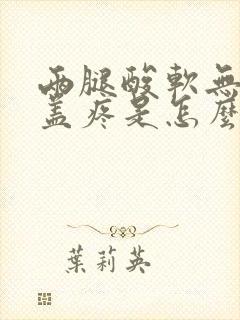 兩腿酸軟無
蓋疼是怎麼
葉莉英